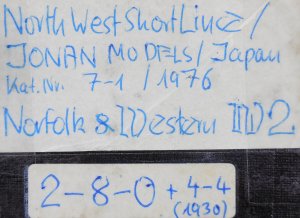 NorthWestShortLine /
JONAN MODELS / Japan
Kat. Nr. 7-1 / 1976
Norfolk & Western W2
2-8-0 + 4-4
(1930)